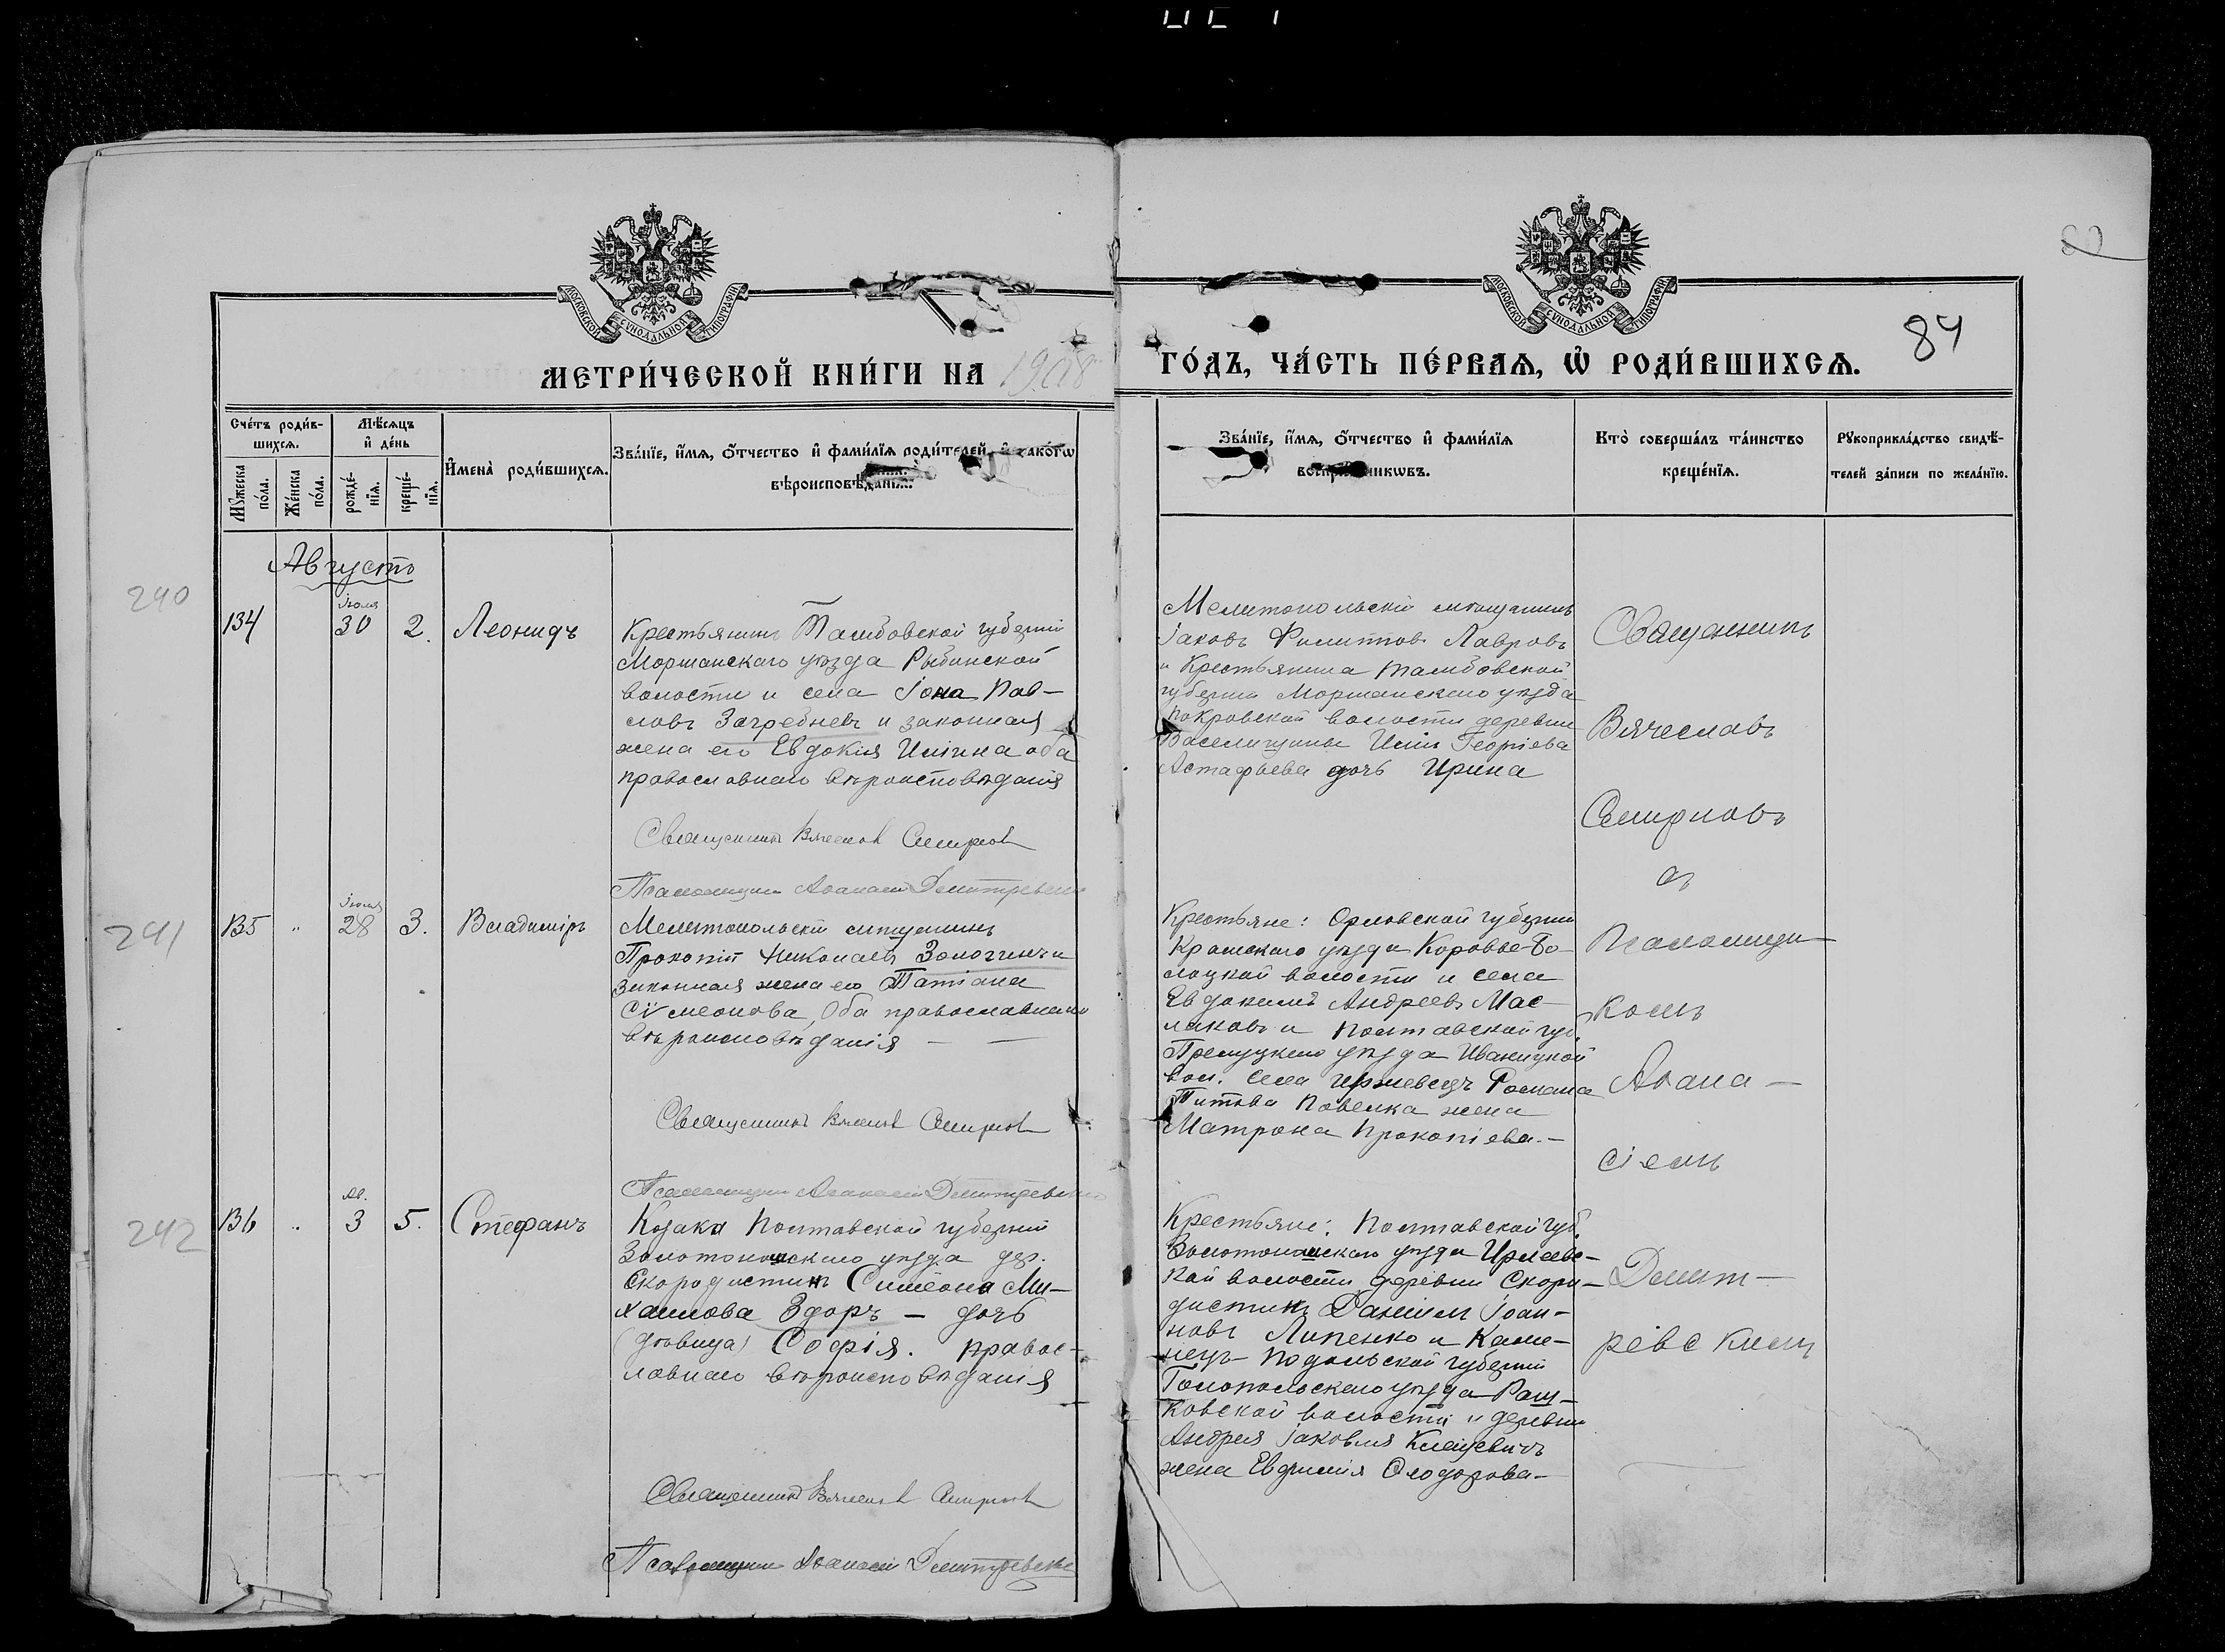 МОСКОВСКОЙ СѴНОДАЛЬНОЙ ТИПОГРАФІИ
МОСКОВСКОЙ СѴНОДАЛЬНОЙ ТИПОГРАФІИ
84
МЕТРИ́ЧЕСКОЙ КНИ́ГИ НА 1908 ГО́ДЪ, ЧА́СТЬ ПЕ́РВАѦ, Ѡ҆ РОДИ́ВШИХСѦ.
Сче́тъ роди́в-
шихсѧ.
Мꙋ́жеска по́ла.
Же́нска по́ла.
Мѣ́сѧцъ и҆ де́нь
рожде́-
нїѧ.
креще́-
нїѧ.
И҆мена̀ роди́вшихсѧ.
Зва́нїе, и҆́мѧ, ѻ҆́тчество и҆ фами́лїѧ роди́телей, и҆ како́гѡ
вѣроисповѣ́данїѧ.
Зва́нїе, и҆́мѧ, ѻ҆́тчество и҆ фами́лїѧ
воспрїе́мникѡвъ.
Кто̀ соверша́лъ та́инство
креще́нїѧ.
Рꙋкоприкла́дство свидѣ́-
телей за́писи по жела́нїю.
Августъ
240
134
Іюля
30
2.
Леонидъ
Крестьянинъ Тамбовской губерніи
Моршанскаго уѣзда Рыбинской
волости и села Іона Пав-
ловъ Загребневъ и законная
жена его Евдокія Иліина оба
православнаго вѣроисповѣданія
Священникъ Вячеслав Смирнов
Псаломщикъ Аѳанасій Димитревскій
Мелитопольскій мѣщанинъ
Іаковъ Филипповъ Лавровъ
и Крестьянина Тамбовской
губерніи Моршанскаго уѣзда
Покровской волости деревни
Иліи Георгіева
Астафьева дочь Ирина
Священникъ
Вячеславъ
Смирновъ
съ
Псаломщи-
комъ
Аѳана-
сіемъ
Димит-
ревскимъ
241
135
"
Іюля
28
3.
Владиміръ
Мелитопольскій мѣщанинъ
Прокопій Николаевъ и
законная жена его Татіана
Сѵмеонова, Оба православнаго
вѣроисповѣданія
Священникъ Вячеслав Смирнов
Псаломщикъ Аѳанасій Димитревскій
Крестьяне: Орловской губерніи
Кромскаго уѣзда Коровье-Бо-
лоцкой волости и села
Евдокимъ Андреевъ Мас-
лаковъ и Полтавской губ.
Прилуцкаго уѣзда Иваницкой
вол. села Романа
Титова Павелка жена
Матрона Прокопіева.-
242
136
"
Ав.
3
5.
Стефанъ
Козака Полтавской губерніи
Золотоношскаго уѣзда дер.
Скородистикъ Симеона Ми-
хаилова Здоръ - дочь
(дѣвица) Софія. Правос-
лавнаго вѣроисповѣданія
Священникъ Вячеслав Смирнов
Псаломщикъ Аѳанасій Димитревскій
Крестьяне: Полтавской губ.
Золотоношскаго уѣзда Ирклеевс-
кой волости деревни Скоро-
дистикъ Даніилъ Іоан-
новъ Липенко и Каме-
нецъ-Подольской губерніи
уѣзда Раш-
ковской волости и деревни
Андрея Іаковля
жена Евфимія Ѳеодорова-